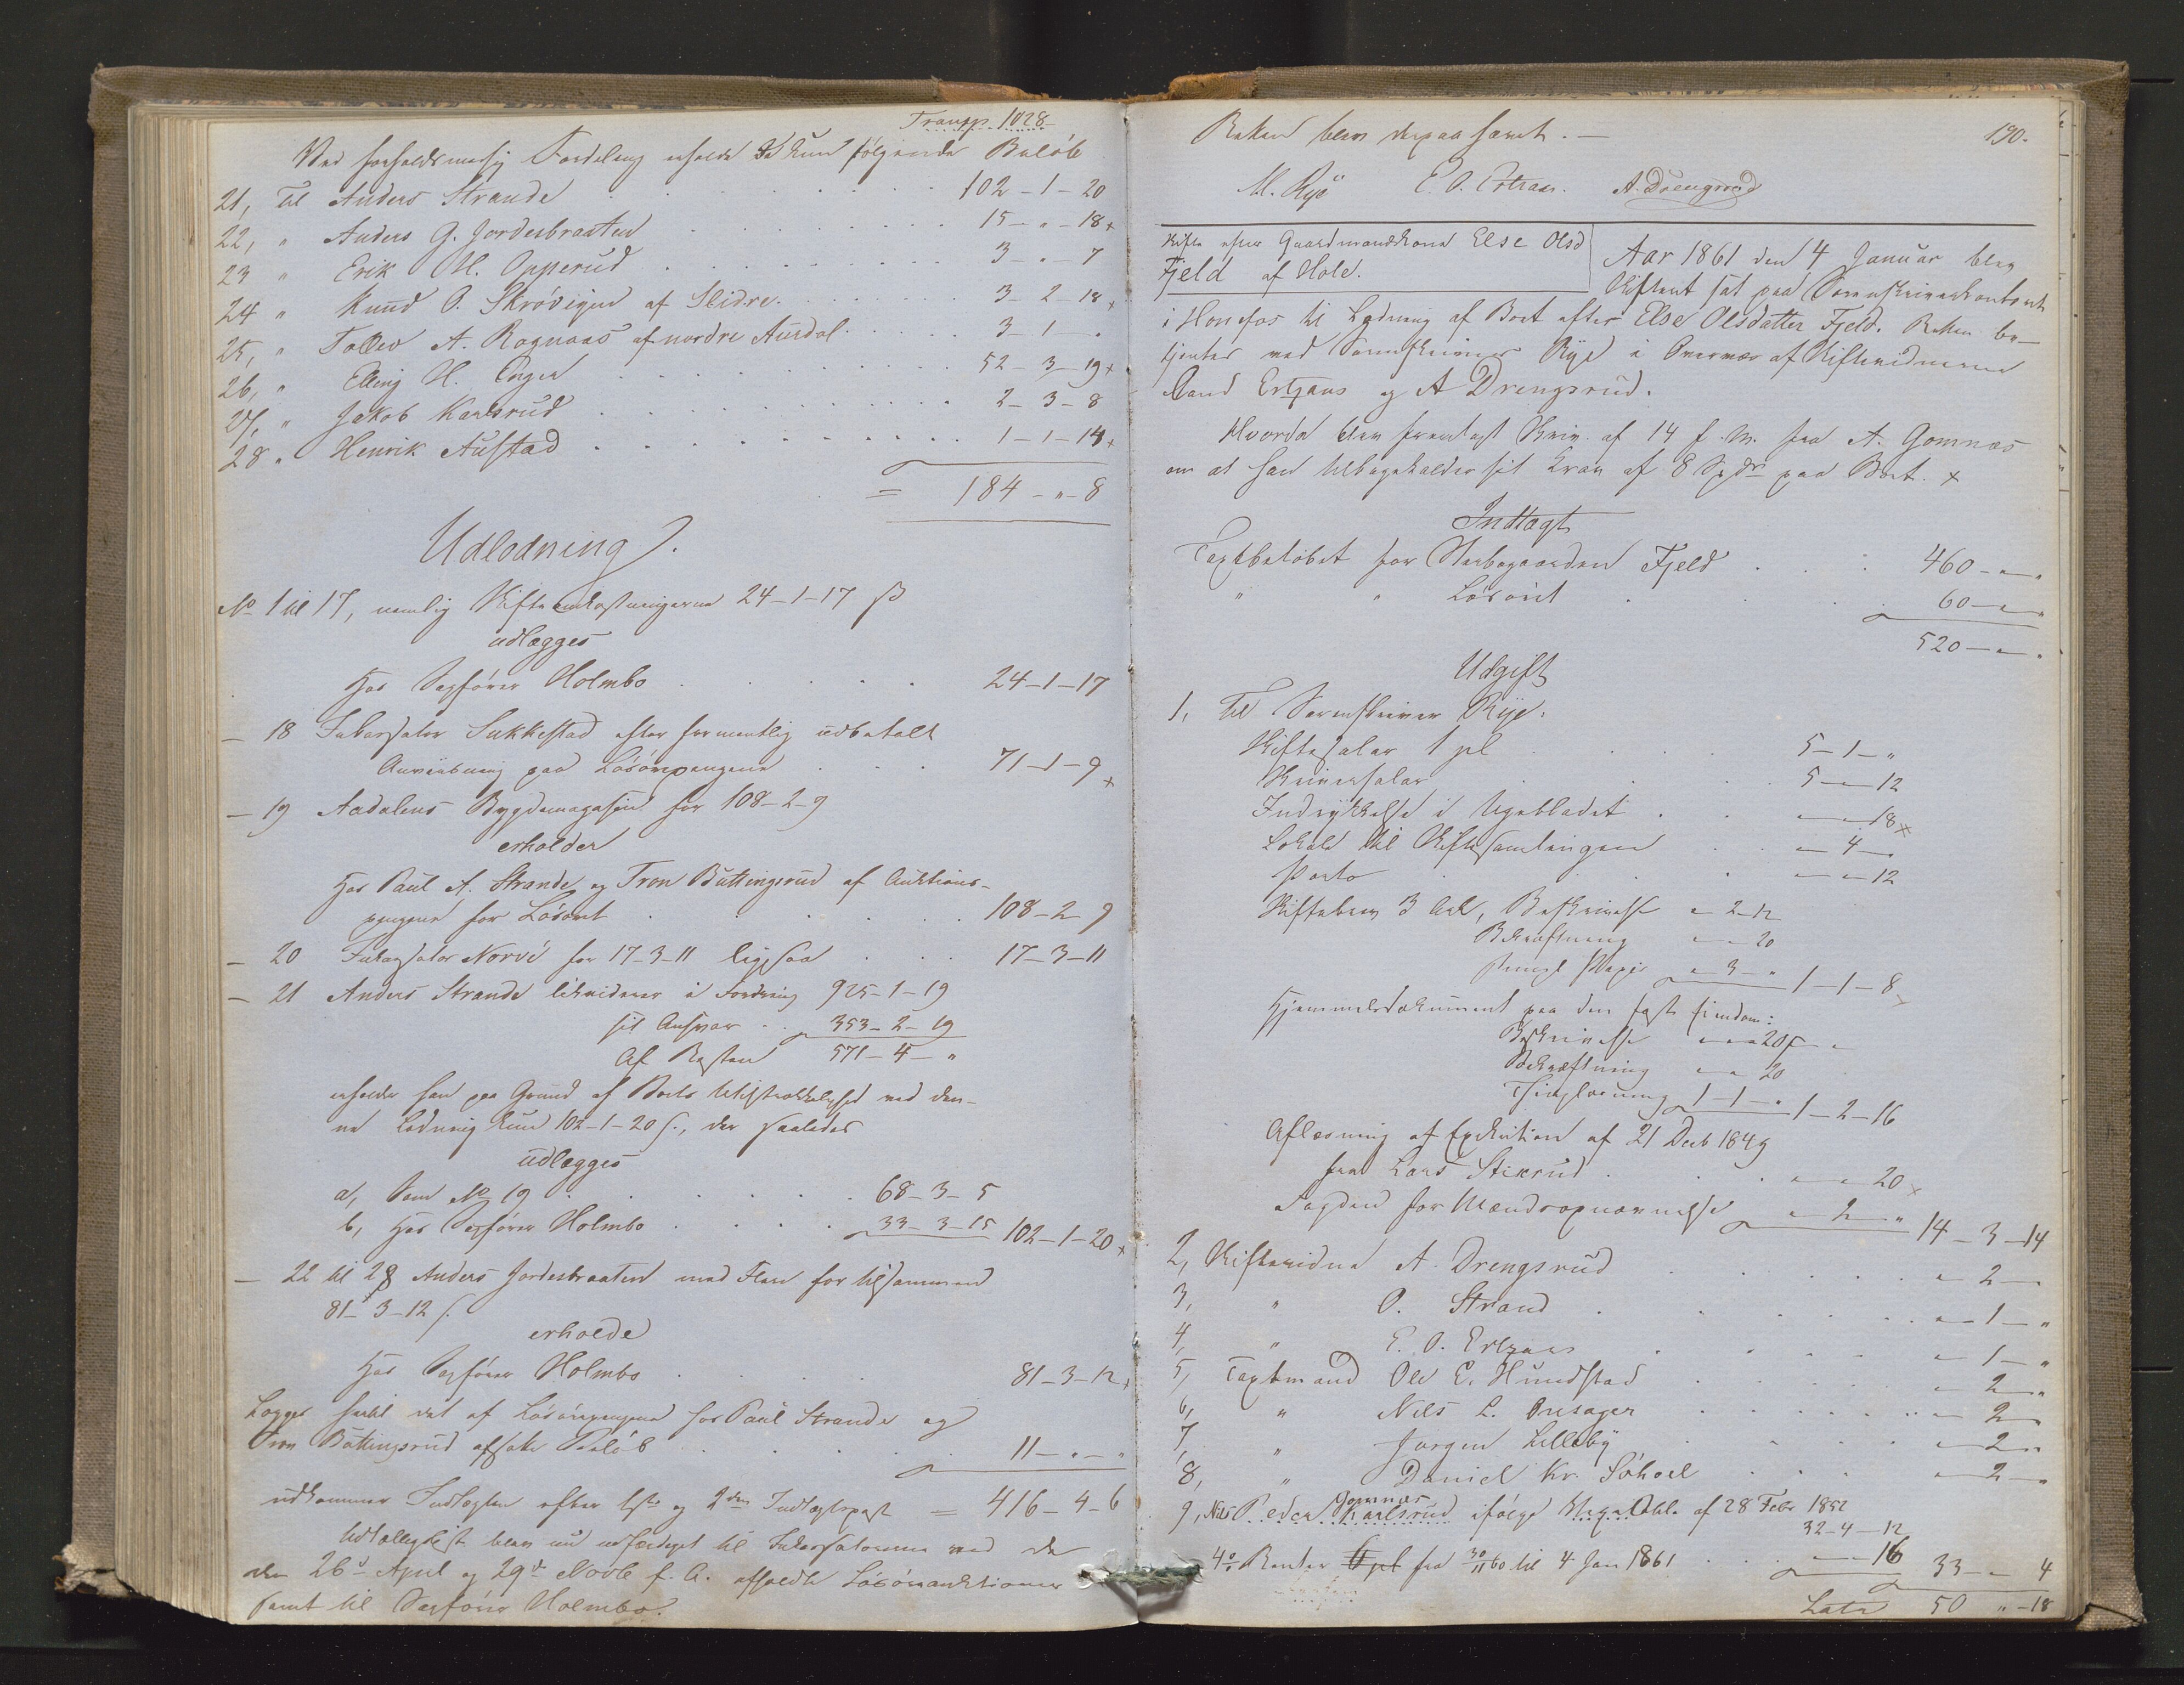 Transp. 1028
Ved forholdsmæsig Fordeling erholde de kun følgende Beløb
21, Til Anders Strande 102-1-20
22, " Anders G. Jordesbraaten 15-"-18
23 " Erik M. Opperud 3-"-7
24 " Knud O. Skrøvigen af Slidre. 3-2-18
25, " Tollev A. Rognaas af nordre Aurdal. 3-1-"
26, " Elling H. Enger 52-3-19
27, " Jakob Karlsrud 2-3-8
28 " Henrik Austad 1-1-14
= 184-"-8
Udlodning.
No 1 til 17, nemlig Skifteomkostningerne 24-1-17 ß
udlægges
Hos Sagfører Holmbo 24-1-17
- 18 Inkassator Sukkestad efter formentlig udbetalt
Anvisning paa Løsørepengene 71-1-9
- 19 Aadalens Bygdemagasin for 108-2-9
erholder
Hos Paul A. Strande og Tron Buttingsrud af Auktions-
pengene for Løsøret 108-2-9
- 20 Inkassator Norvi for 17-3-11 ligesaa 17-3-11
- 21 Anders Strande likviderer i Fordring 925-1-19
sit Ansvar 353-2-19
Af Resten 571-4-"
erholder han paa Grund af Boets Utilstrækkelighed ved den-
ne Lodning kun 102-1-20 ß., der saaledes
udlægges
a, Som No 19 68-3-5
b, Hos Sagfører Holmbo 33-3-15 102-1-20
- 22 til 28 Anders Jordesbraaten med Flere for tilsammen
81-3-12 ß.
erholde
Hos Sagfører Holmbo 81-3-12
Lægges hertil det af Løsørepengene hos Paul Strande og
Tron Buttingsrud afsatte Beløb 11-"-"
udkommer Indtægten efter 1ste og 2den Indtægtspost = 416-4-6
Udlæggslist blev nu udfærdiget til Inkassatorerne ved de
den 26de April og 29de Novb f. A. afholdte Løsøreauktioner
samt til Sagfører Holmbo.
190.
Retten blev derpaa hævet. -
M. Rye E. O. Ertzaas. A. Drengsrud
Skifte efter Gaardmandskone Else Olsd
Fjeld af Hole.
Aar 1861 den 4 Januar blev
Skifteret sat paa Sorenskriverkontoret
i Honefos til Lodning af Boet efter Else Olsdatter Fjeld. Retten be-
tjentes ved Sorenskriver Rye i Overvær af Skiftevidnerne
Erik Ertzaas og A Drengsrud.
Hvorda blev fremlagt Skriv. af 14 f. M. fra A. Gomnæs
om at han tilbagekalder sit Krav af 8 Spdr paa Boet.
Indtægt
Taxtbeløbet for Stervbogaarden Fjeld 460-"-"
" " Løsøret 60-"-"
520-"-"
Udgift
1, Til Sorenskriver Rye:
Skiftesalær 1 pct 5-1-"
Skriversalær 5-"-12
Indrykkelse i Ugebladet "-"-18
Lokale til Skiftesamlingen "-4-"
Porto "-"-12
Skiftebrev 3 Ark, Beskrivelse "-2-12
Bekræftning "-"-20
Stempl. Papir "-3-" 1-1-8
Hjemmelsdokument paa den faste Eiendom:
Beskrivelse "-"-20
Bekræftning "-"-20
Thinglæsning 1-1-" 1-2-16
Aflæsning af Exekution af 21 Decb 1849
fra Lars Stikrud "-"-20
Fogden for Mændsopnævnelse "-2-" 14-3-14
2, Skiftevidne A. Drengsrud "-2-"
3, " O. Strand "-1-"
4, " E. O. Ertzaas "-1-"
5, Taxtmand Ole E. Hundstad "-2-"
6, " Nils L. Onsager "-2-"
7, " Jørgen Lilleby "-2-"
8, " Daniel Kr. Søhoel "-2-"
9, Nils Peder Gomnæs Karlsrud ifølge Obl. af 28 Febr 1852
32-4-12
4% Renter fra 30/11 60 til 4 Jan 1861 "-"-16 33-"-4
Lateris 50 "-18